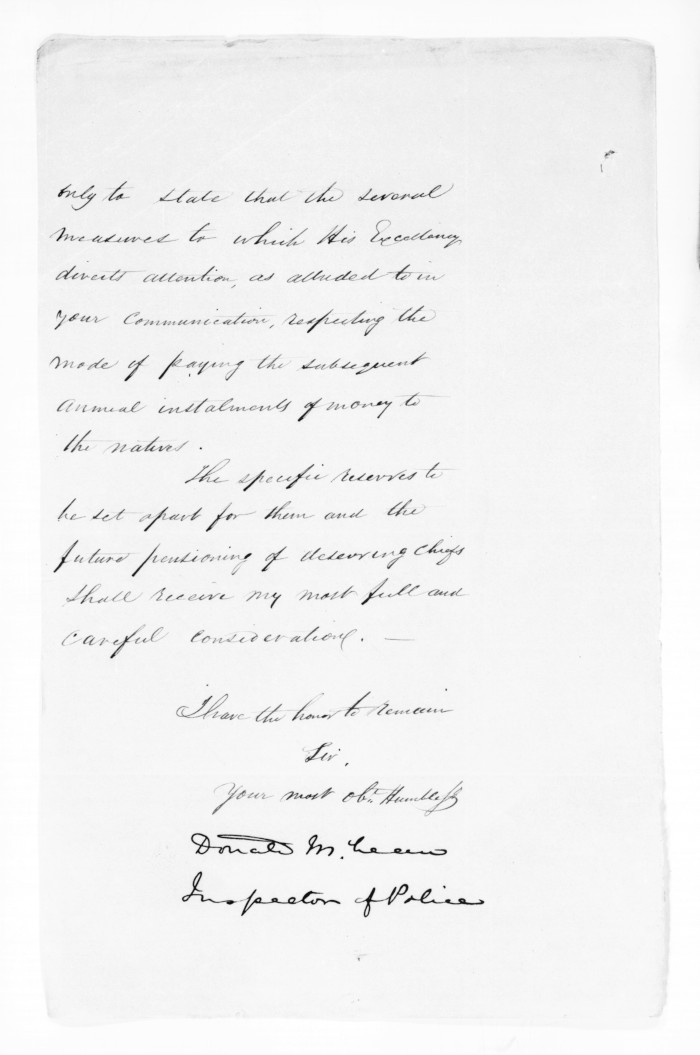 only to state that the several
measures to which His Excellency
directs attention, as alluded to in
your communication, respecting the
mode of paying the subsequent
annual instalments of money to
the natives.
The specific reserves to
be set apart for them and the
future pensioning of deserving Chiefs
shall receive my most full and
careful consideration. —
I have the honor to remain
Sir,
Your most obt. Humble St
Donald McLean
Inspector of Police